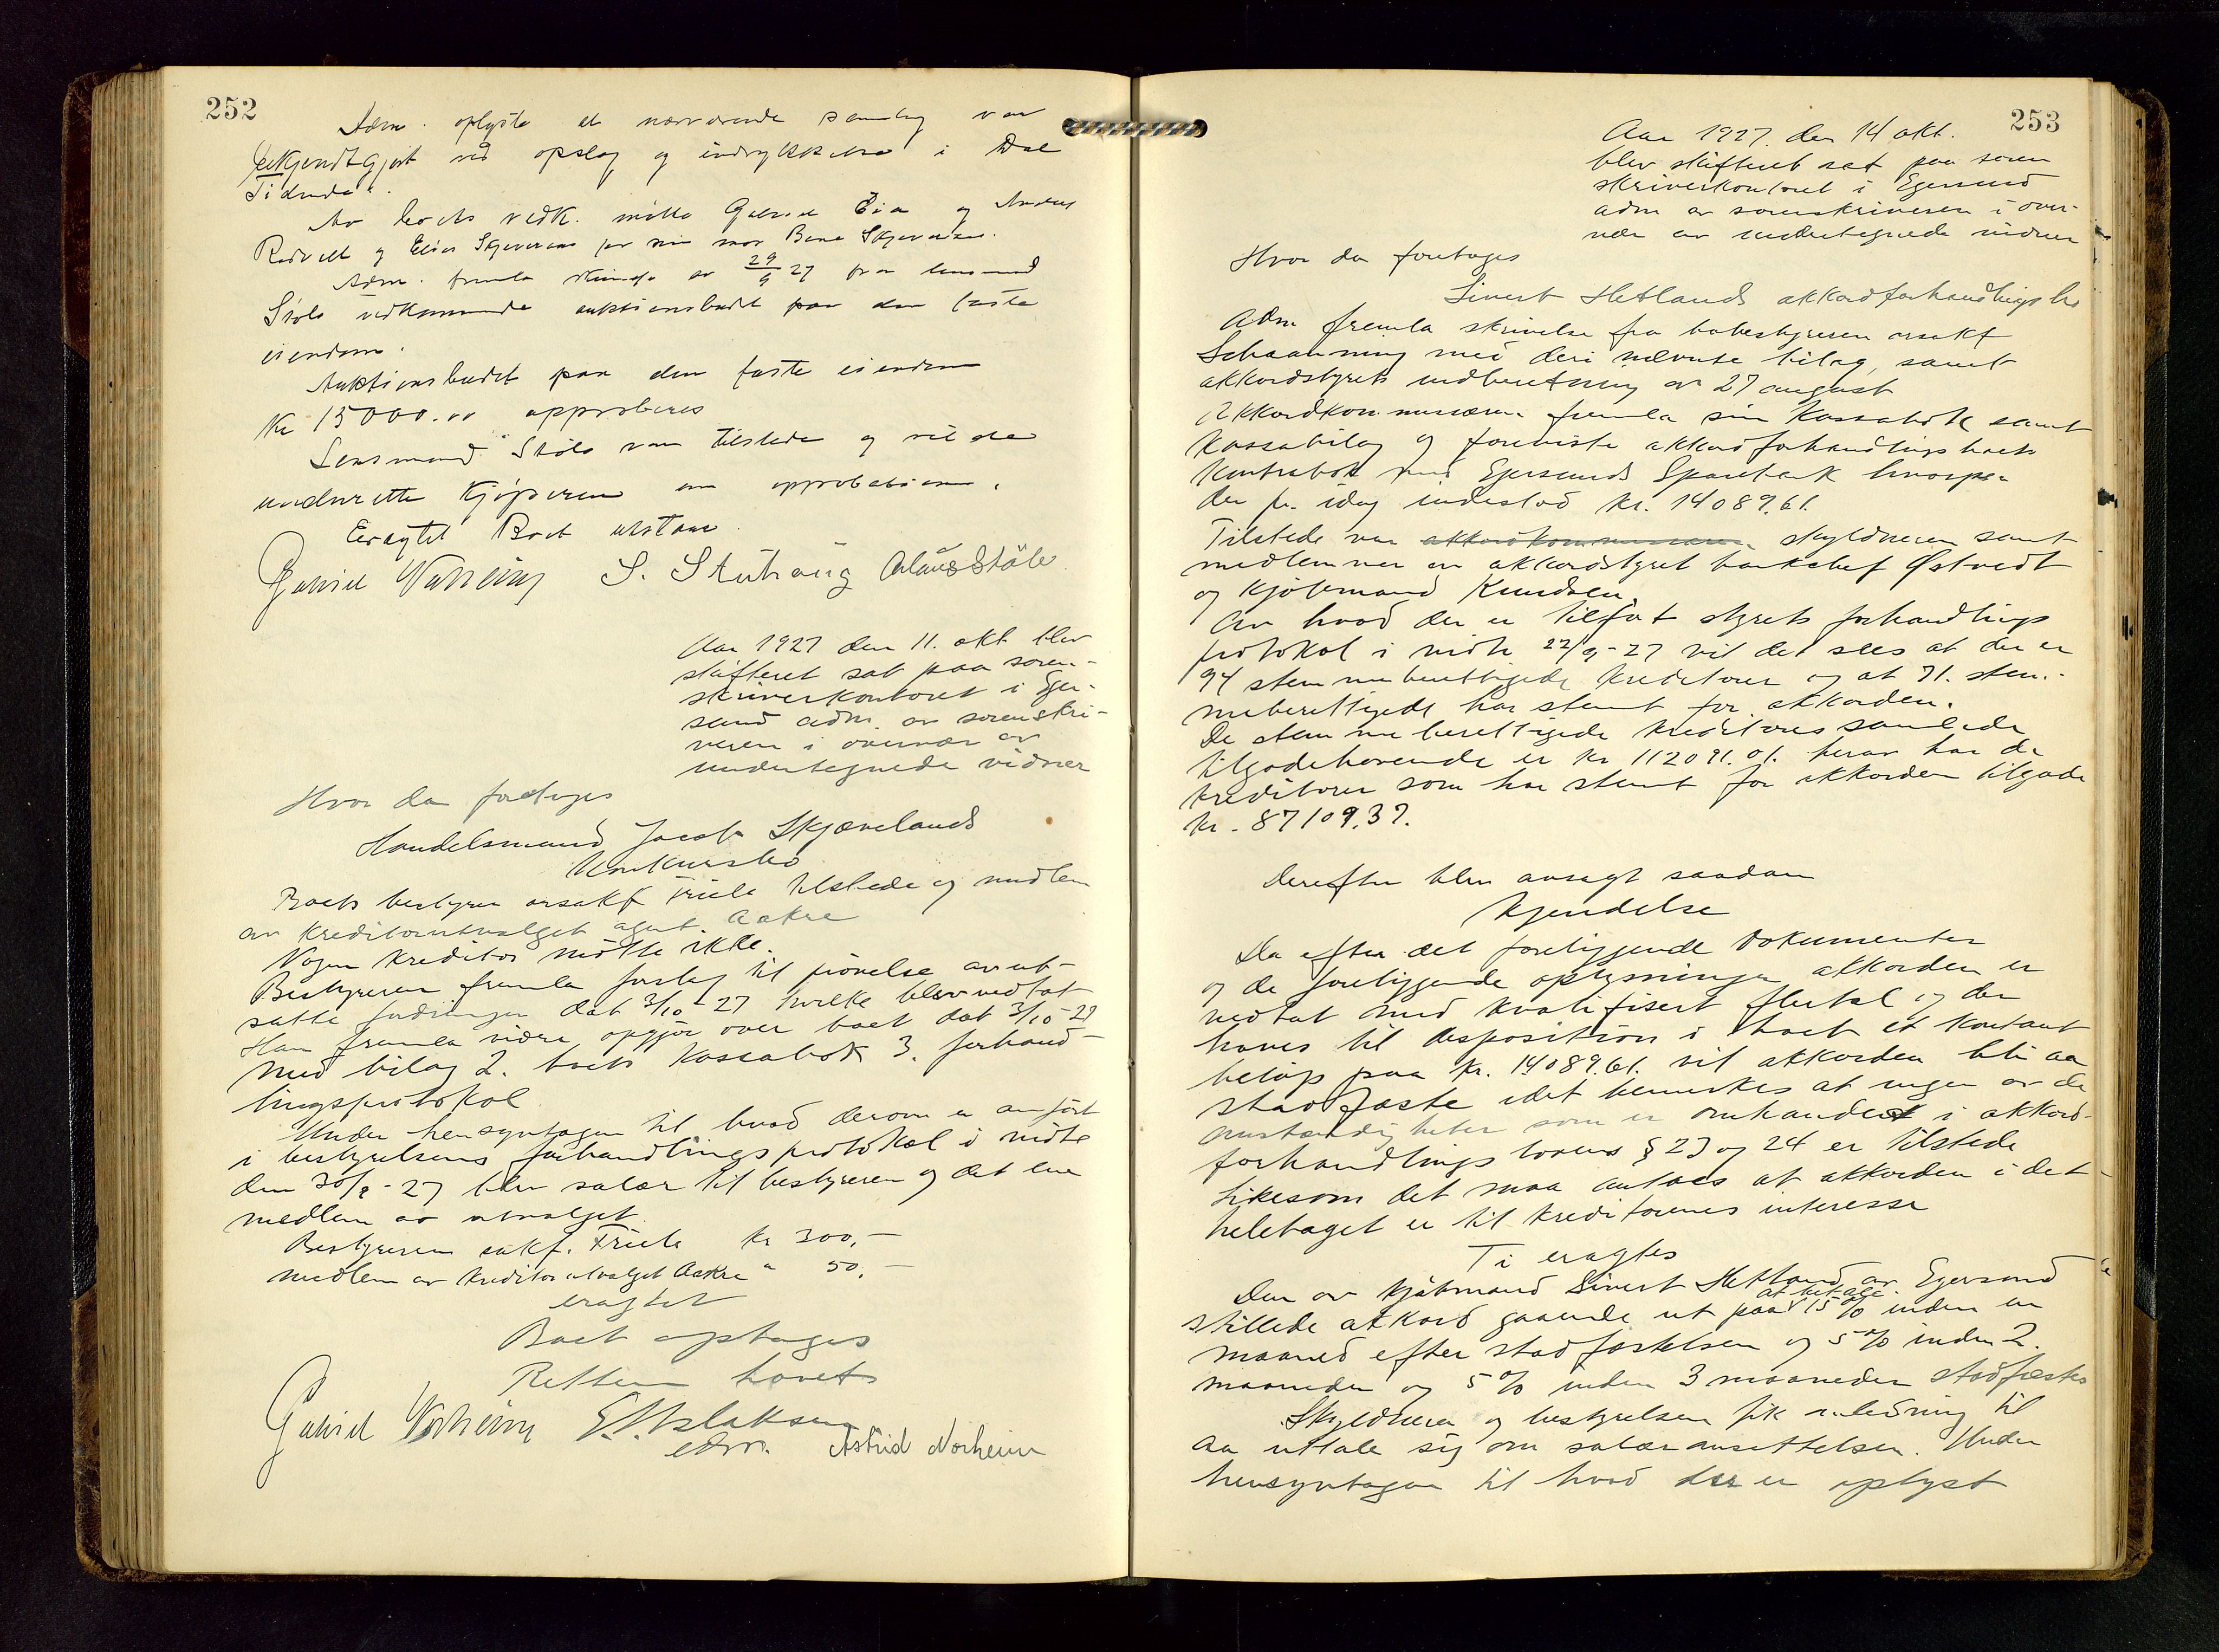 252
Adm. oplyste at nærværende samling var
bekjendtgjort ved opslag og indrykkelse i Dal
Tidende.
Av boets vedk. møtte Gabriel Eia og Anders
Rødvelt og Elias Skjeveraas for sin mor Berte Skjeveraas.
Adm. fremla skrivelse av 29/9 27 fra lensmand
Støle vedkommende auktionsbudet paa den faste
eiendom.
Auktionsbudet paa den faste eiendom
Kr 15000.00 approberes
Lensmand Støle var tilstede og vil
underrette kjøperen om approbationen.
Eragtet Boet utstaar.
Gabriel Norheim S. Stuhaug Olaus Støle
Aar 1927 den 11. okt blev
skifteret sat paa soren-
skriverkontoret i Eger-
sund adm. av sorenskri-
veren i overvær av
undertegnede vidner
Hvor da foretages
Handelsmand Jacob Skjævelands
Konkursbo
Boets bestyrer orsakf Friele tilstede og medlem
av kreditorutvalget agent. Aakre
Nogen kreditor møtte ikke.
Bestyreren fremla forslag til prøvelse av ut-
satte fordringer dat 3/10-27 hvilke blev vedtat
Han fremla videre opgjør over boet dat 3/10-27
med bilag 2. boets kassabok 3. forhand-
lingsprotokol
Under hensyntagen til hvad derom er anført
i bestyrelsens forhandlingsprotokol i møte
den 30/9-27 blev salær til bestyreren og det ene
medlem av utvalget
Bestyreren sakf. Friele kr 300,-
medlem av kreditorutvalget Aakre " 50,-
eragtet
Boet optages
Retten hævet
Gabriel Norheim E. Aslaksen
edsv. Astrid Norheim
253
Aar 1927. den 14 okt.
blev skifteret sat paa soren
skriverkontoret i Egersund
adm av sorenskriveren i over-
vær av undertegnede vidner
Hvor da foretages
Sivert Hetlands akkordforhandlingsbo
Adm fremla skrivelse fra bobestyreren orsakf
Schaanning med deri nævnte bilag, samt
akkordstyrets indberetning av 27 august
Akkordkommissæren fremla sin kassabok samt
kassabilag og foreviste akkordforhandlingsboets
kontrabok med Egersunds Sparebank hvorpaa
der pr. idag indestod kr. 14089.61.
Tilstede var akkordkommissæren. skyldneren samt
medlemmer av akkordstyret bankchef Østvedt
og kjøbmand Knudsen.
Av hvad der er tilført styrets forhandlings
protokol i møte 22/9-27 vil det sees at der er
94 stemmeberettigede kreditorer og at 71. stem-
meberettigede har stemt for akkorden.
De stemmeberettigede kreditores samlede
tilgodehavende er kr 112091.01. herav har de
kreditorer som har stemt for akkorden tilgode
kr. 87109.37.
Derefter blev avsagt saadan
Kjendelse
Da efter det foreliggende dokumenter
og de foreliggende oplysninger akkorden er
vedtat med kvalifisert flertal og der
haves til disposition i boet et kontant
beløp paa kr. 14089.61. vil akkorden bli aa
stadfæste idet bemerkes at ingen av de
omstændigheter som er omhandlet i akkord-
forhandlingslovens § 23 og 24 er tilstede
likesom det maa antaes at akkorden i det-
heletaget er til kreditorenes interesse
Ti eragtes
Den av kjøbmand Sivert Hetland av Egersund
at betale
stillede akkord gaaende ut paa 15 % inden en
maaned efter stadfæstelsen og 5 % inden 2.
maaneder og 5 % inden 3 maaneder stadfæstes
Skyldneren og bestyrelsen fik anledning til
aa uttale sig om salæransettelsen. Under
hensyntagen til hvad der er oplyst